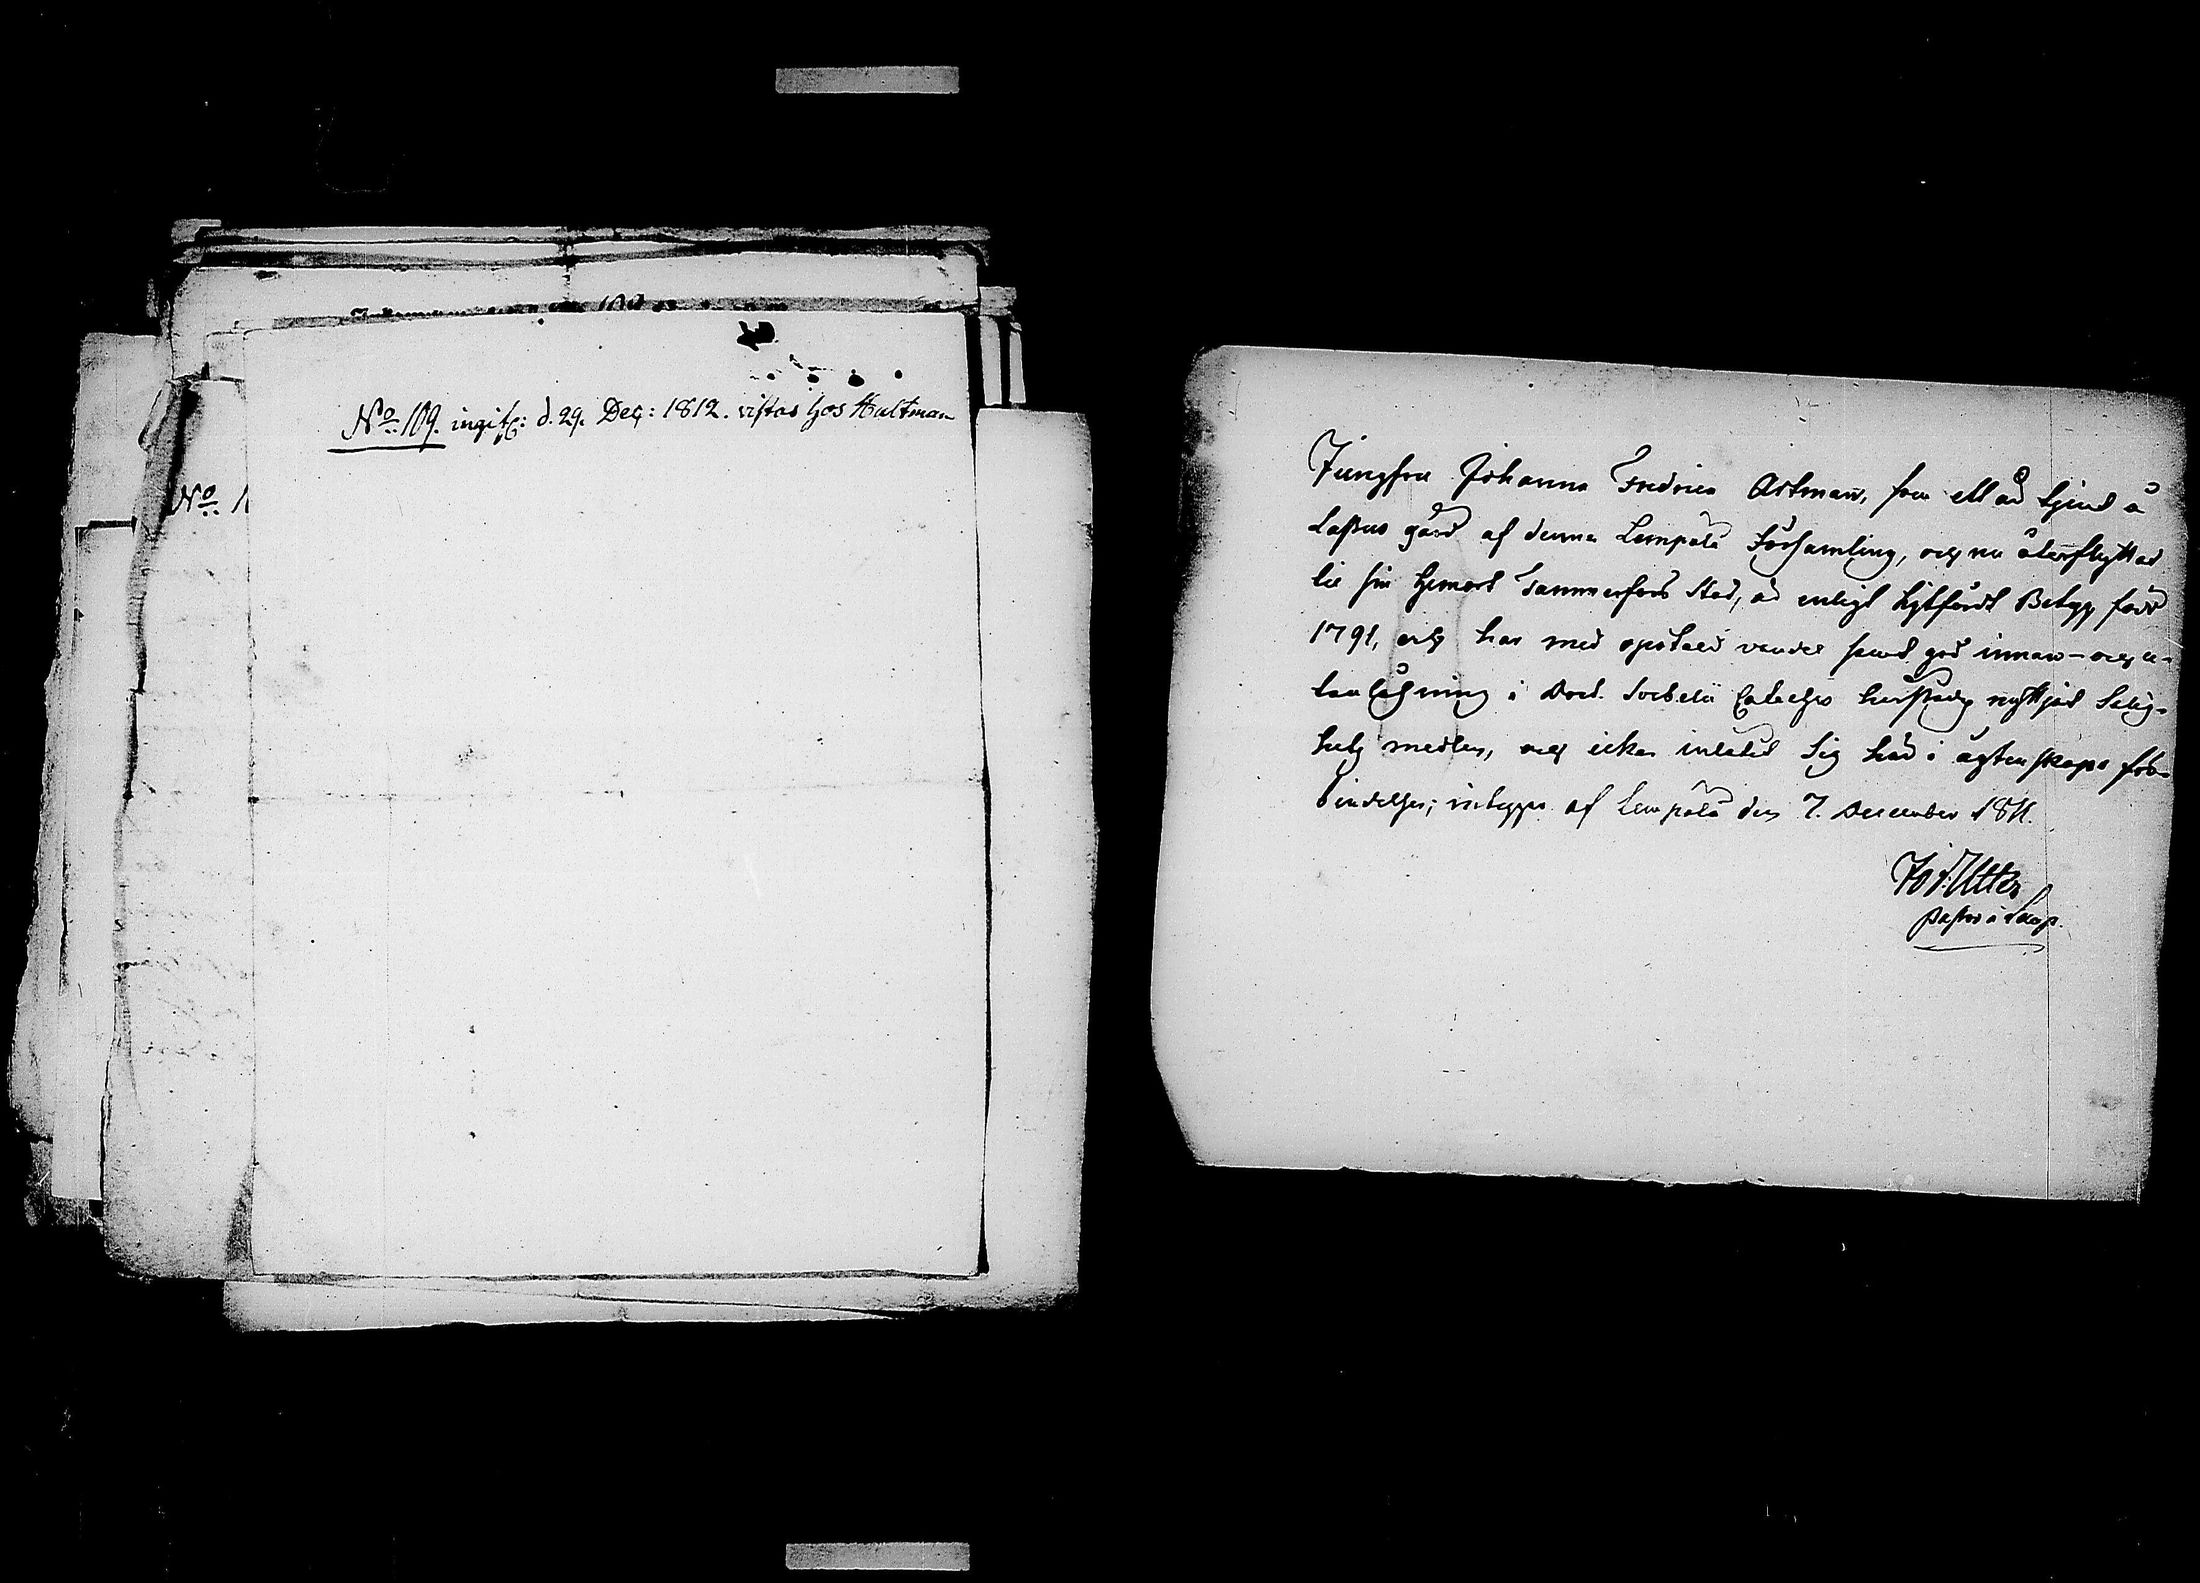 No: 109. ingifv: d. 29. Dec: 1812. vistas hos Hultman
No: 1
Jungfru Johanna Fredrica Ostman, som ett år tjent å
Lassus gård af denna Lempälä Församling, och nu återflyttar
til sin hemort Tammerfors Stad, är enligt hitfördt Betyg född
1791, och har med opåtald vandel samt god innan- och u-
tanläsning i Doct. Svebelii Cateches härstädes nyttjat Salig-
hets medlen, och icke inlåtit sig här i ägtenskaps för-
bindelse; intygas af Lempälä den 7. December 1811.
Pastor i Lemp.